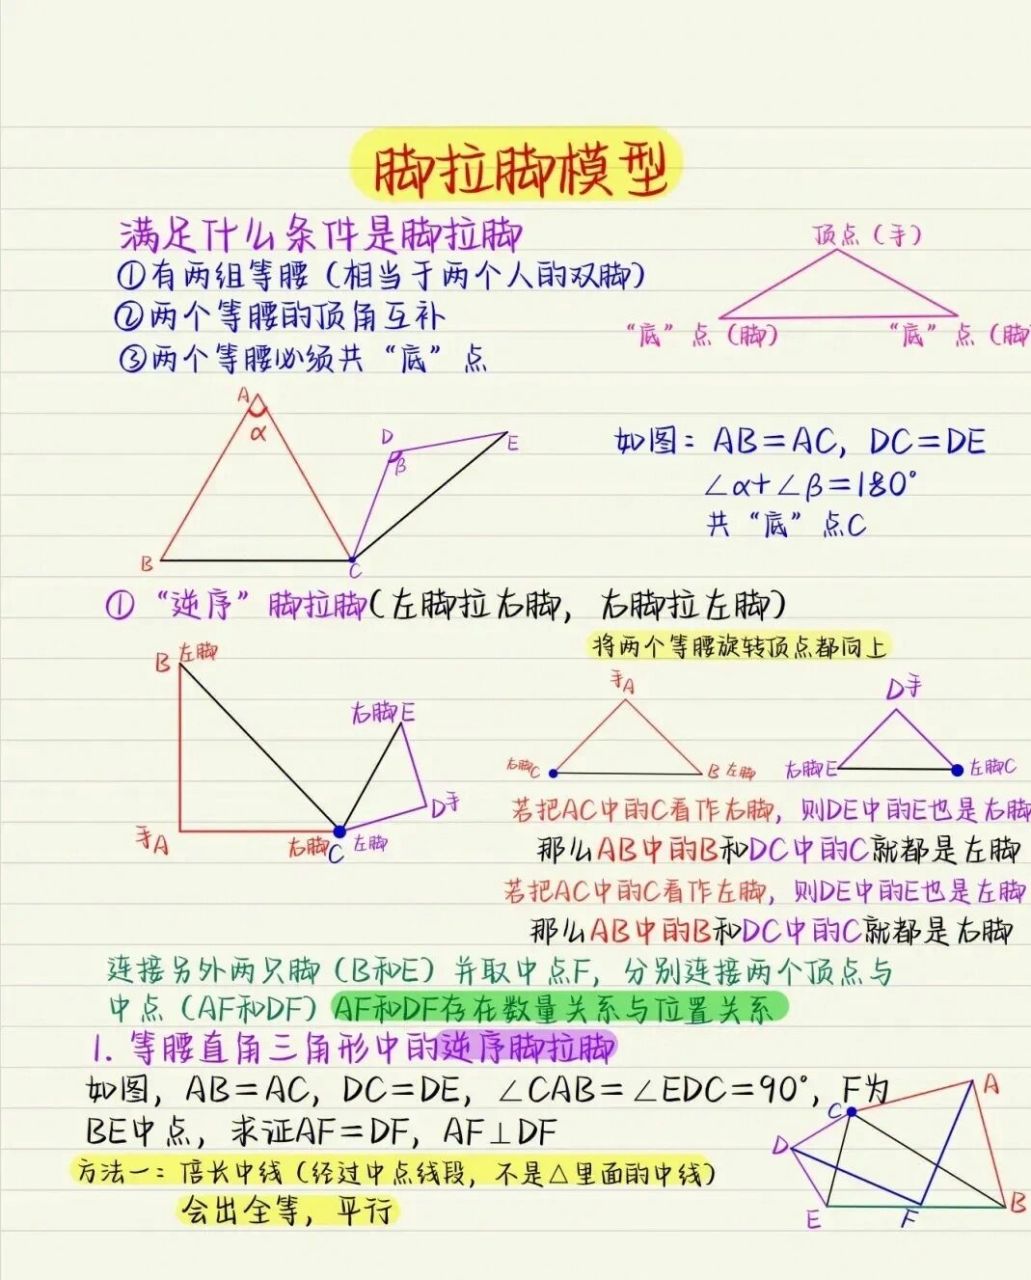 脚拉脚模型
满足什么条件是脚拉脚
①有两组等腰（相当于两个人的双脚）
②两个等腰的顶角互补
③两个等腰必须共“底”点
顶点（手）
“底”点（脚）
“底”点（脚
A
α
B
C
D
β
E
如图：AB=AC，DC=DE
∠α+∠β=180°
共“底”点C
①“逆序”脚拉脚（左脚拉右脚，右脚拉左脚）
将两个等腰旋转顶点都向上
B 左脚
右脚E
D手
手A
右脚C 左脚
手A
右脚C
B 左脚
D手
右脚E
左脚C
若把AC中的C看作右脚，则DE中的E也是右脚
那么AB中的B和DC中的C就都是左脚
若把AC中的C看作左脚，则DE中的E也是左脚
那么AB中的B和DC中的C就都是右脚
连接另外两只脚（B和E）并取中点F，分别连接两个顶点与
中点（AF和DF）AF和DF存在数量关系与位置关系
1. 等腰直角三角形中的逆序脚拉脚
如图，AB=AC，DC=DE，∠CAB=∠EDC=90°，F为
BE中点，求证AF=DF，AF⊥DF
方法一：倍长中线（经过中点线段，不是△里面的中线）
会出全等，平行
C
A
D
E
F
B